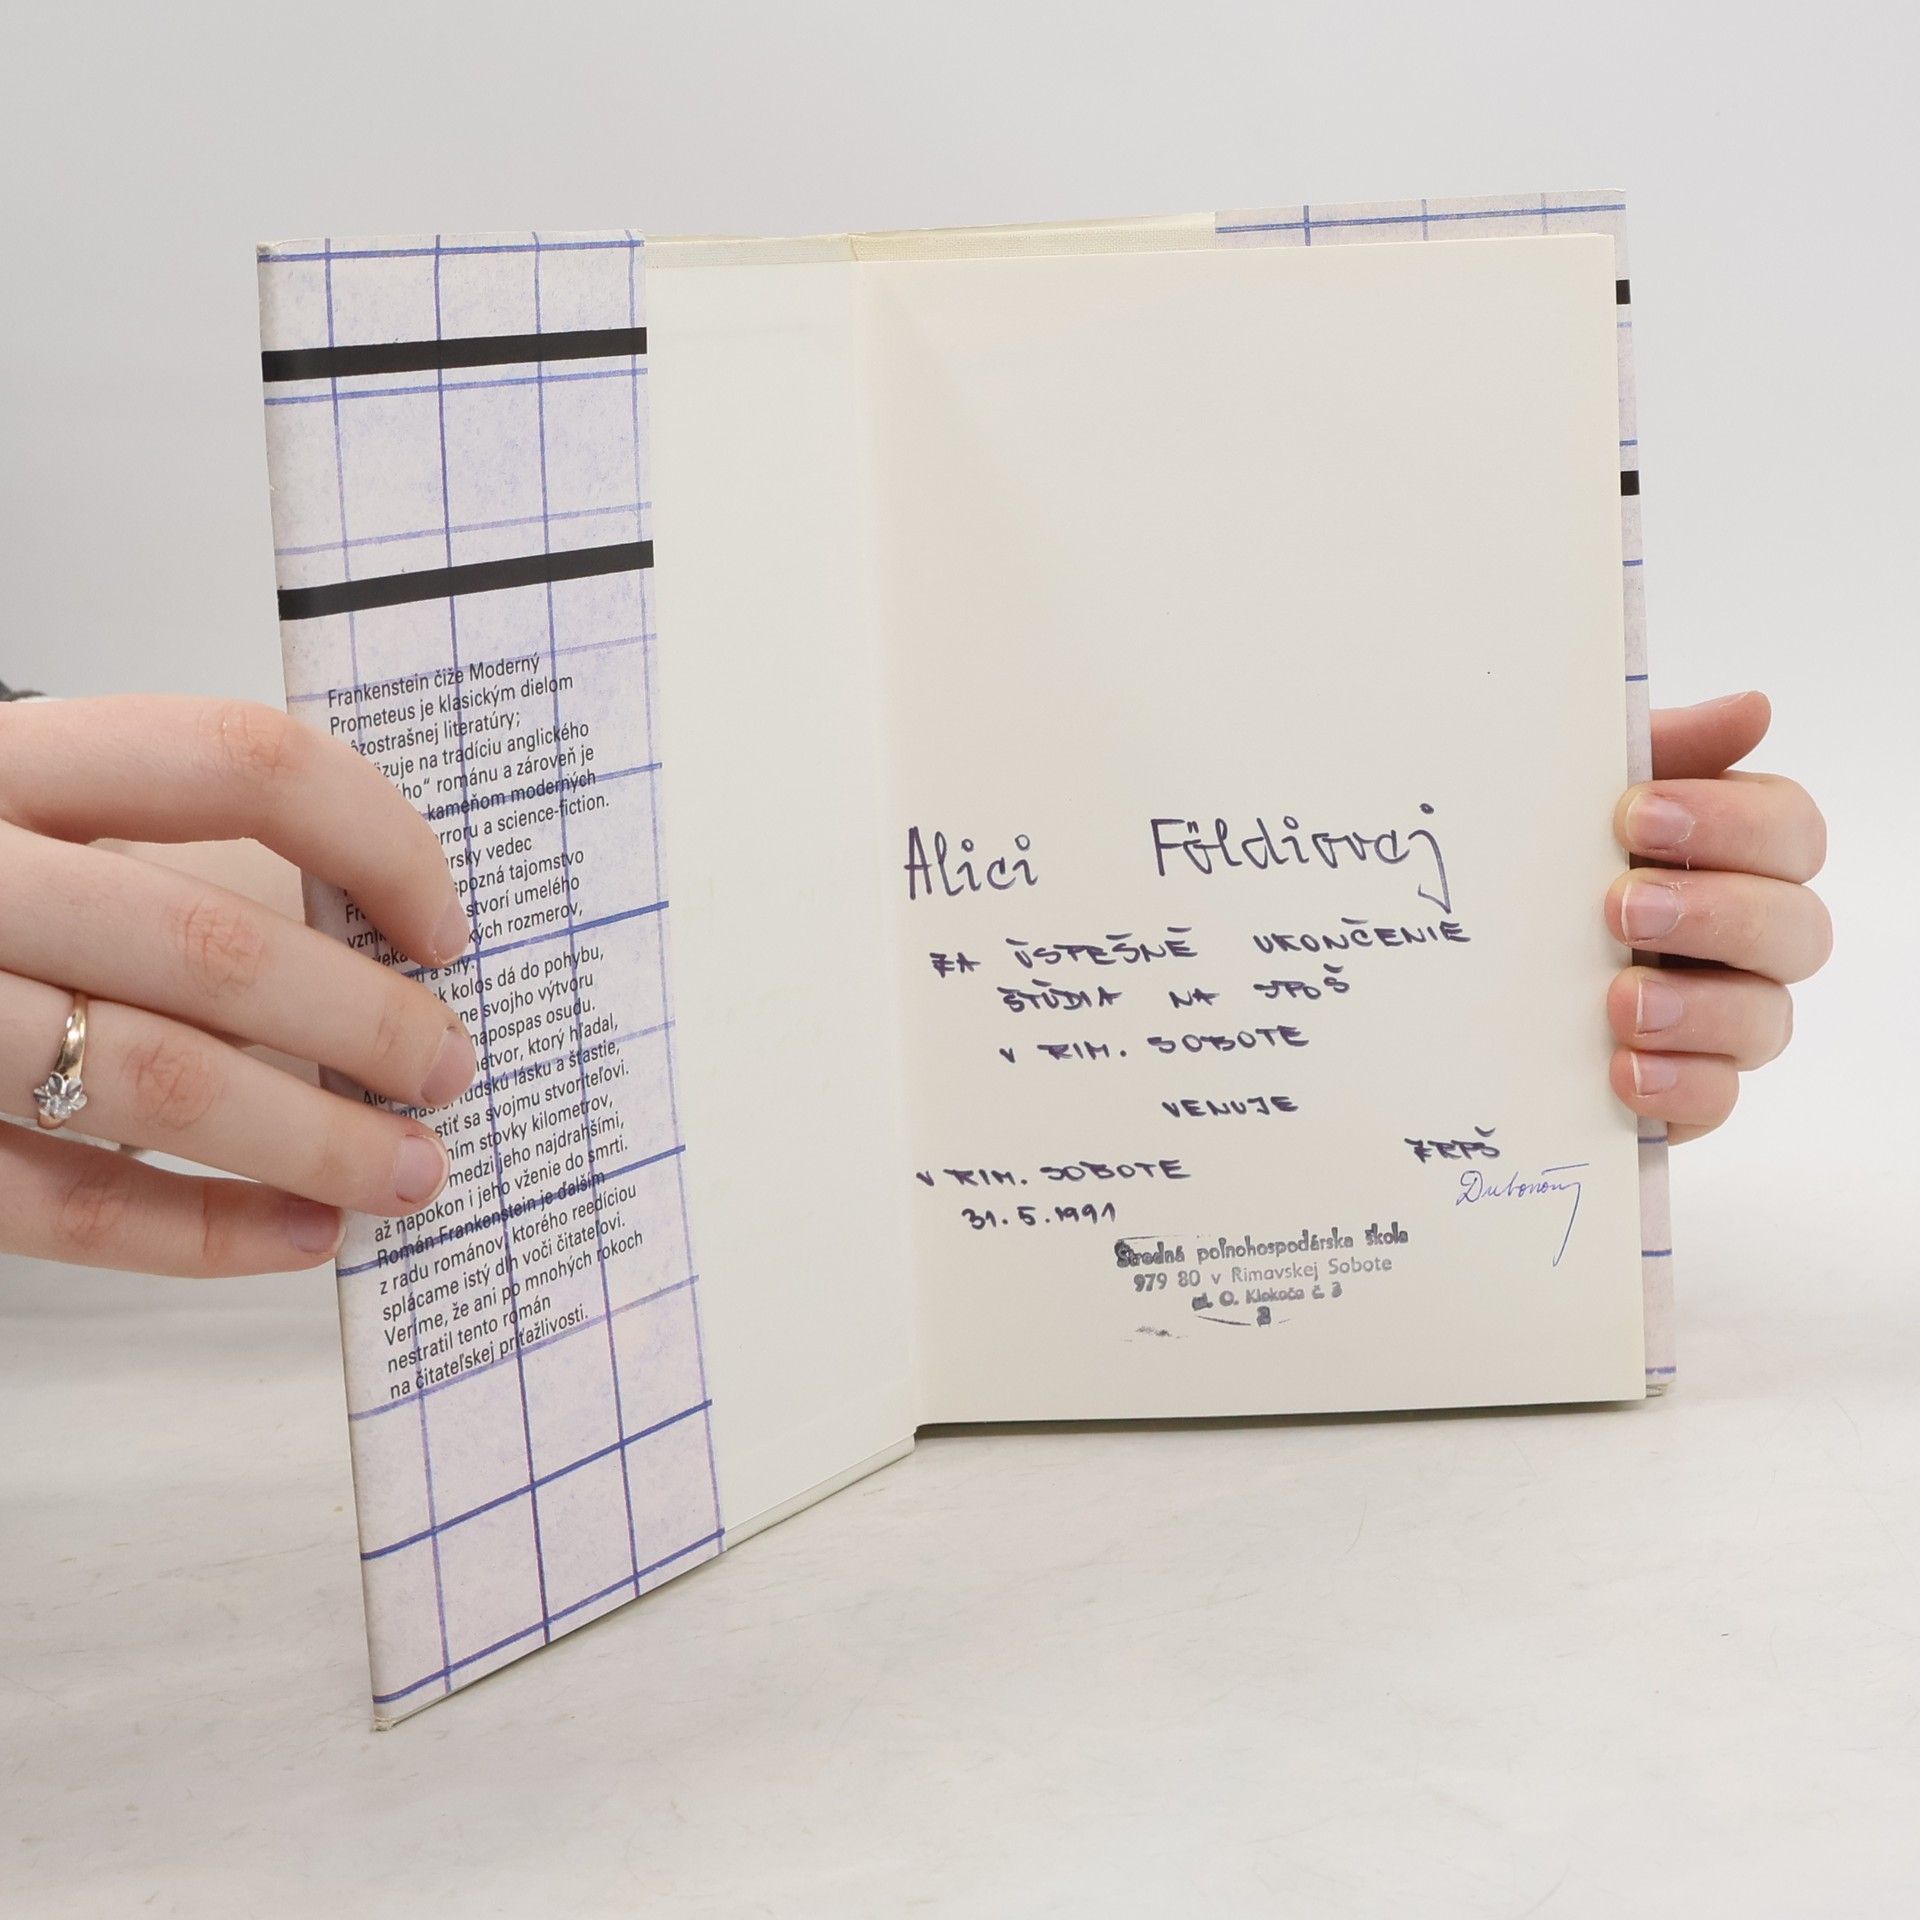 Frankenstein čiže Moderný
Prometeus je klasickým dielom
literatúry;
na tradíciu anglického
románu a zároveň je
kameňom moderných
a science-fiction.
vedec
spozná tajomstvo
stvorí umelého
rozmerov,
a sily.
kolos dá do pohybu,
svojho výtvoru
napospas osudu.
netvor, ktorý hľadal,
ľudskú lásku a šťastie,
sa svojmu stvoriteľovi.
ním stovky kilometrov,
medzi jeho najdrahšími,
až napokon i jeho vženie do smrti.
Román Frankenstein je ďalším
z radu románov, ktorého reedíciou
splácame istý dlh voči čitateľovi.
Veríme, že ani po mnohých rokoch
nestratil tento román
na čitateľskej príťažlivosti.
Alici Földiovej
ZA ÚSPEŠNÉ UKONČENIE
ŠTÚDIA NA SPOŠ
V RIM. SOBOTE
VENUJE
ZRPŠ
V RIM. SOBOTE
31.5.1991
Stredná poľnohospodárska škola
979 80 v Rimavskej Sobote
ul. O. Klokoča č. 3
2